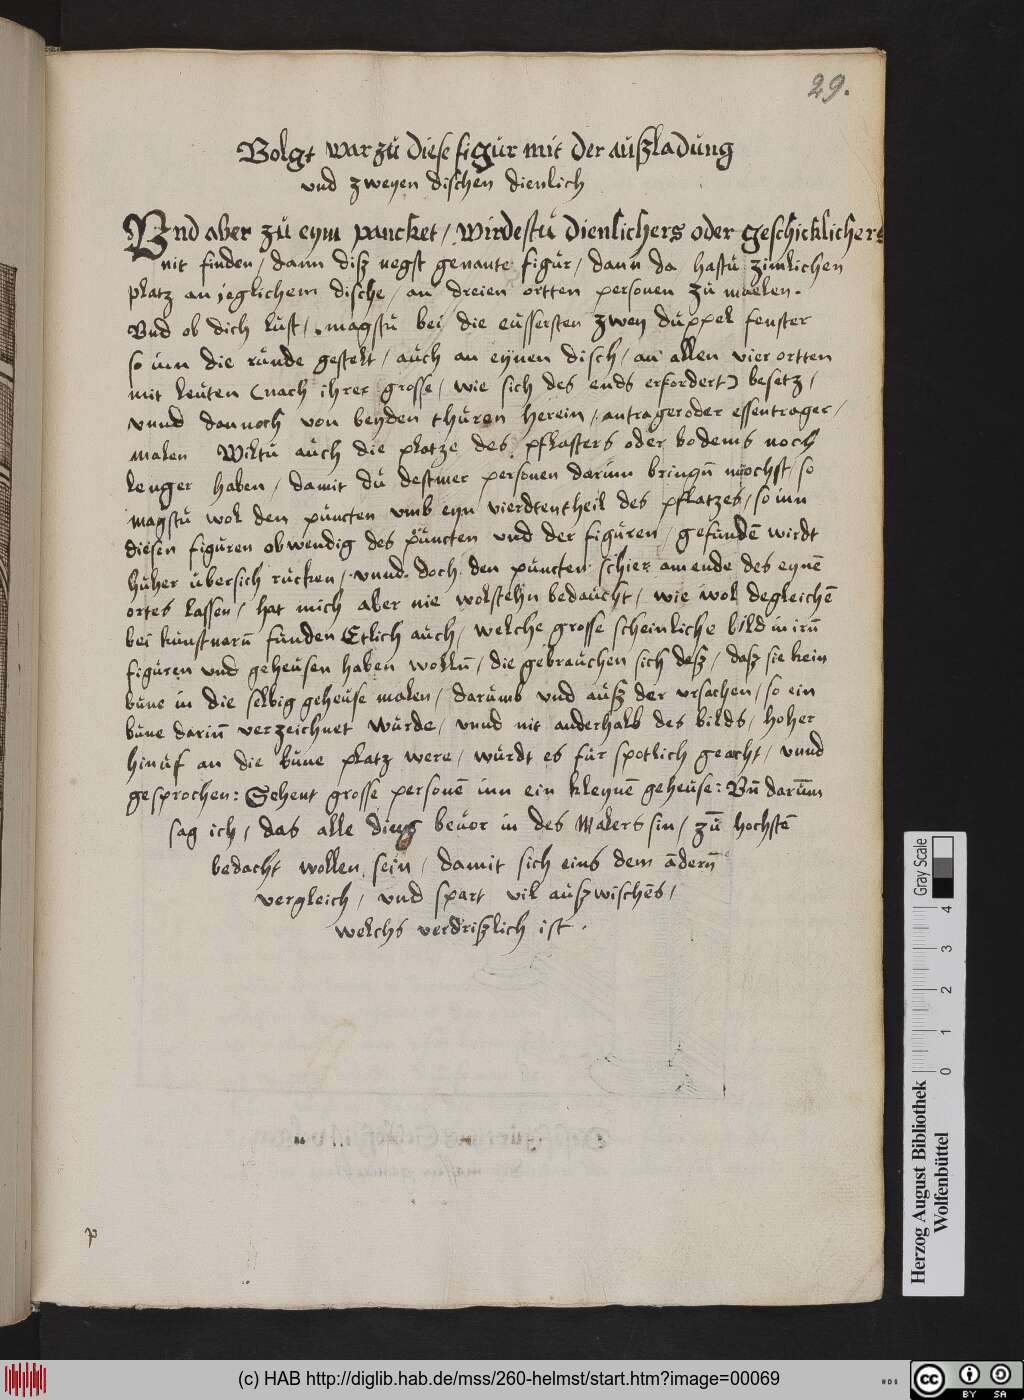 29.
Volgt warzu diese figur mit der außladung
und zweyen dischen dienlich
Vnd aber zu eym pancket / wirdestu dienlichers oder geschicklichers
nit finden / dann diß negst genante figur / dann da hastu zimlichen
platz an jeglichem dische / an dreien ortten personen zu maelen.
Vnd ob dich lust / magstu bei die eussersten zwey duppel fenster
so inn die runde gestelt / auch an eynen disch / an allen vier ortten
mit leuten (nach ihrer grosse / wie sich des ends erfordert) besetz /
vnnd dannoch von beyden thuren herein / antrager oder essentrager /
malen Wiltu auch die platze des pflasters oder bodems noch
lenger haben / damit du destmer personen darinn bringñ mochst / so
magstu wol den puncten vmb eyn vierdtentheil des pflatzes / so inn
diesen figuren obwendig des puncten vnd der figuren / gefundē wirdt
huher ubersich rucken / vnnd doch den puncten schier am ende des eynē
ortes lassen / hat mich aber nie wolstehn bedaucht / wie wol degleichē
bei kunstnerñ funden Etlich auch / welche grosse scheinliche bild in irñ
figuren vnd geheusen haben wollñ / die gebrauchen sich deß / daß sie kein
bune in die selbig geheuse malen / darumb vnd auß der vrsachen / so ein
bune darinñ verzeichnet wurde / vnnd nit anderhalb des bilds / hoher
hinuf an die bune platz were / wurdt es fur spotlich geacht / vnnd
gesprochen: Sehent grosse personē inn ein kleynē geheuse: Vñ darum̄
sag ich / das alle ding beuor in des Malers sin / zū hochstē
bedacht wollen sein / damit sich eins dem āderñ
vergleich / vnd spart vil außwischēs /
welchs verdrißlich ist .
p
Gray Scale
0 1 2 3 4
Herzog August Bibliothek
Wolfenbüttel
(c) HAB http://diglib.hab.de/mss/260-helmst/start.htm?image=00069
cc BY SA